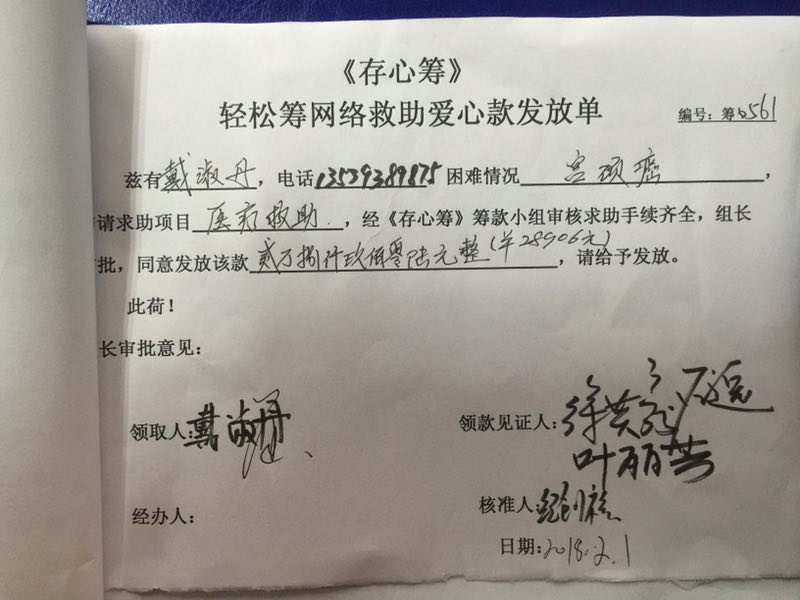 《存心筹》
轻松筹网络救助爱心款发放单
编号：筹0561
兹有戴淑丹，电话13539389875困难情况宫颈癌，
请求助项目医疗救助，经《存心筹》筹款小组审核求助手续齐全，组长
批，同意发放该款贰万捌仟玖佰零陆元整(￥28906元)，请给予发放。
此荷！
长审批意见：
领取人：戴淑丹
领款见证人：徐英
叶丽芸
经办人：
核准人：
日期：2018.2.1